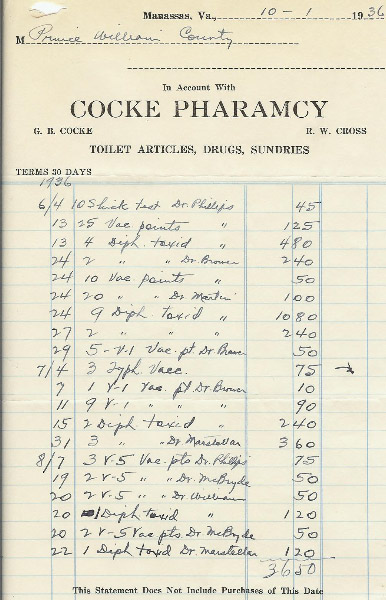 Manassas, Va., 10-1 1936
M Prince William County
In Account With
COCKE PHARAMCY
G. B. COCKE R. W. CROSS
TOILET ARTICLES, DRUGS, SUNDRIES
TERMS 30 DAYS
1936
6/4 10 Shick Test Dr Phillips 45
13 25 Vac points " 125
13 4 Diph. toxid " 480
24 2 " " Dr Brown 240
24 10 Vac points " 50
24 20 " " Dr Martin 100
24 9 Diph toxid " 1080
27 2 " " " 240
29 5-V-1 Vac. pt. Dr Brown 50
7/4 3 Typh Vacc. 75
7 1 V-1 Vac. pt Dr Brown 10
11 9 V-1 " " " 90
15 2 Diph toxid " 240
31 3 " " Dr Marstellar 360
8/7 3 V-5 Vac. pts Dr. Phillips 75
19 2 V-5 " " Dr. McBryde 50
20 2 V-5 " " Dr William 50
20 1 Diph toxid " 120
20 2 V-5 Vac pts. Dr McBryde 50
22 1 Diph toxid Dr Marstellar 120
3650
This Statement Does Not Include Purchases of This Date